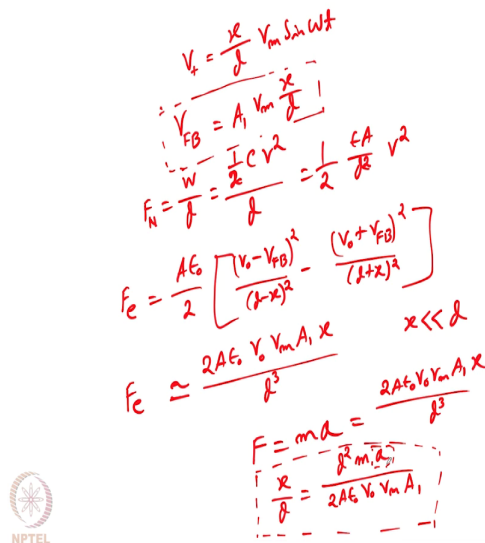 V₊ = x/d Vm Sin Wt
V_FB = A₁ Vm x/d
F_N = W/d = (½ C V²)/d = 1/2 εA/d² V²
F_e = Aε₀/2 [ (V₀ - V_FB)²/(d-x)² - (V₀ + V_FB)²/(d+x)² ]
x << d
F_e ≃ 2Aε₀ V₀ Vm A₁ x / d³
F = ma = 2Aε₀ V₀ Vm A₁ x / d³
x/d = d² m a / 2Aε₀ V₀ Vm A₁
NPTEL